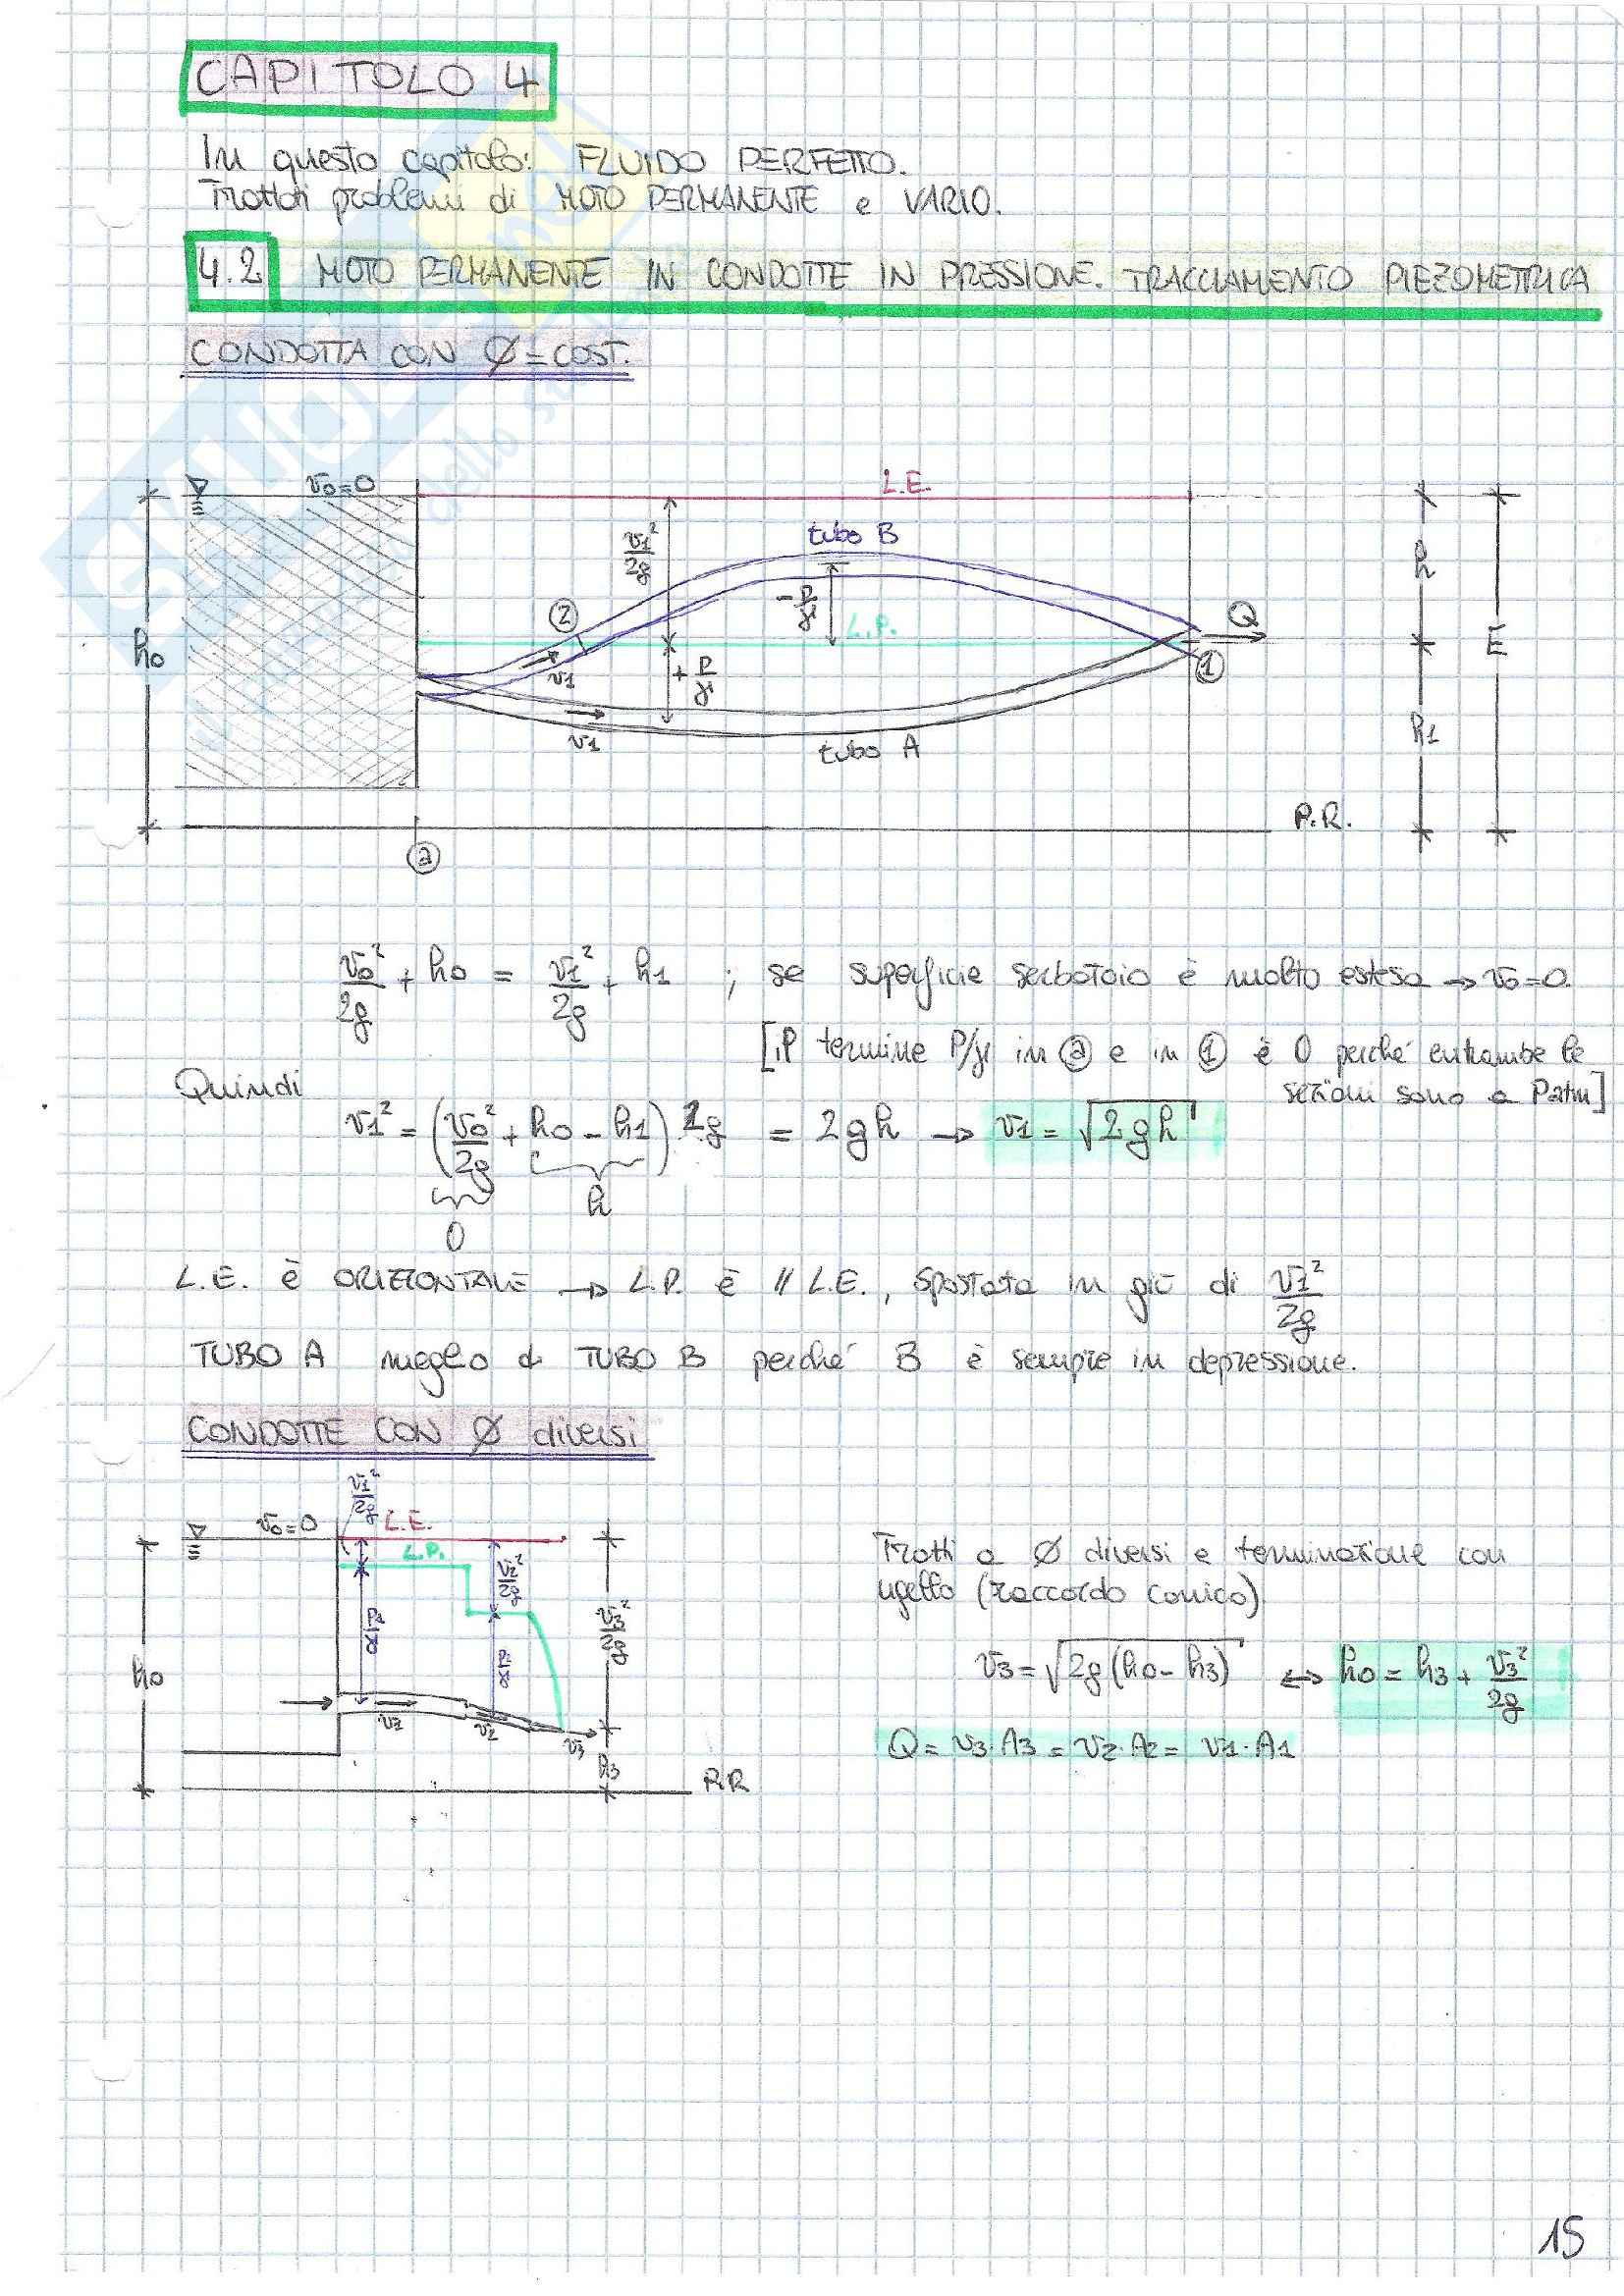 CAPITOLO 4
In questo capitolo: FLUIDO PERFETTO.
Trattati problemi di MOTO PERMANENTE e VARIO.
4.2 MOTO PERMANENTE IN CONDOTTE IN PRESSIONE. TRACCIAMENTO PIEZOMETRICA
CONDOTTA CON Ø = COST.
v0=0
L.E.
v1²/2g
tubo B
h
2
-P/γ
L.P.
Q
h0
E
v1
+P/γ
1
h1
v1
tubo A
P.R.
a
v0²/2g + h0 = v1²/2g + h1 ; se superficie serbatoio è molto estesa → v0=0.
[il termine P/γ in a e in 1 è 0 perché entrambe le
sezioni sono a Patm]
Quindi
v1² = (v0²/2g + h0 - h1) 2g = 2gh → v1 = √2gh
h
0
L.E. è ORIZZONTALE → L.P. è // L.E., spostata in giù di v1²/2g
TUBO A meglio di TUBO B perché B è sempre in depressione.
CONDOTTE CON Ø diversi
v1²/2g
v0=0
L.E.
L.P.
v2²/2g
P/γ
v3²/2g
P/γ
h0
v1
v2
v3
h3
P.R
Tratti a Ø diversi e terminazione con
ugello (raccordo conico)
v3 = √2g(h0-h3) ↔ h0 = h3 + v3²/2g
Q = v3·A3 = v2·A2 = v1·A1
15